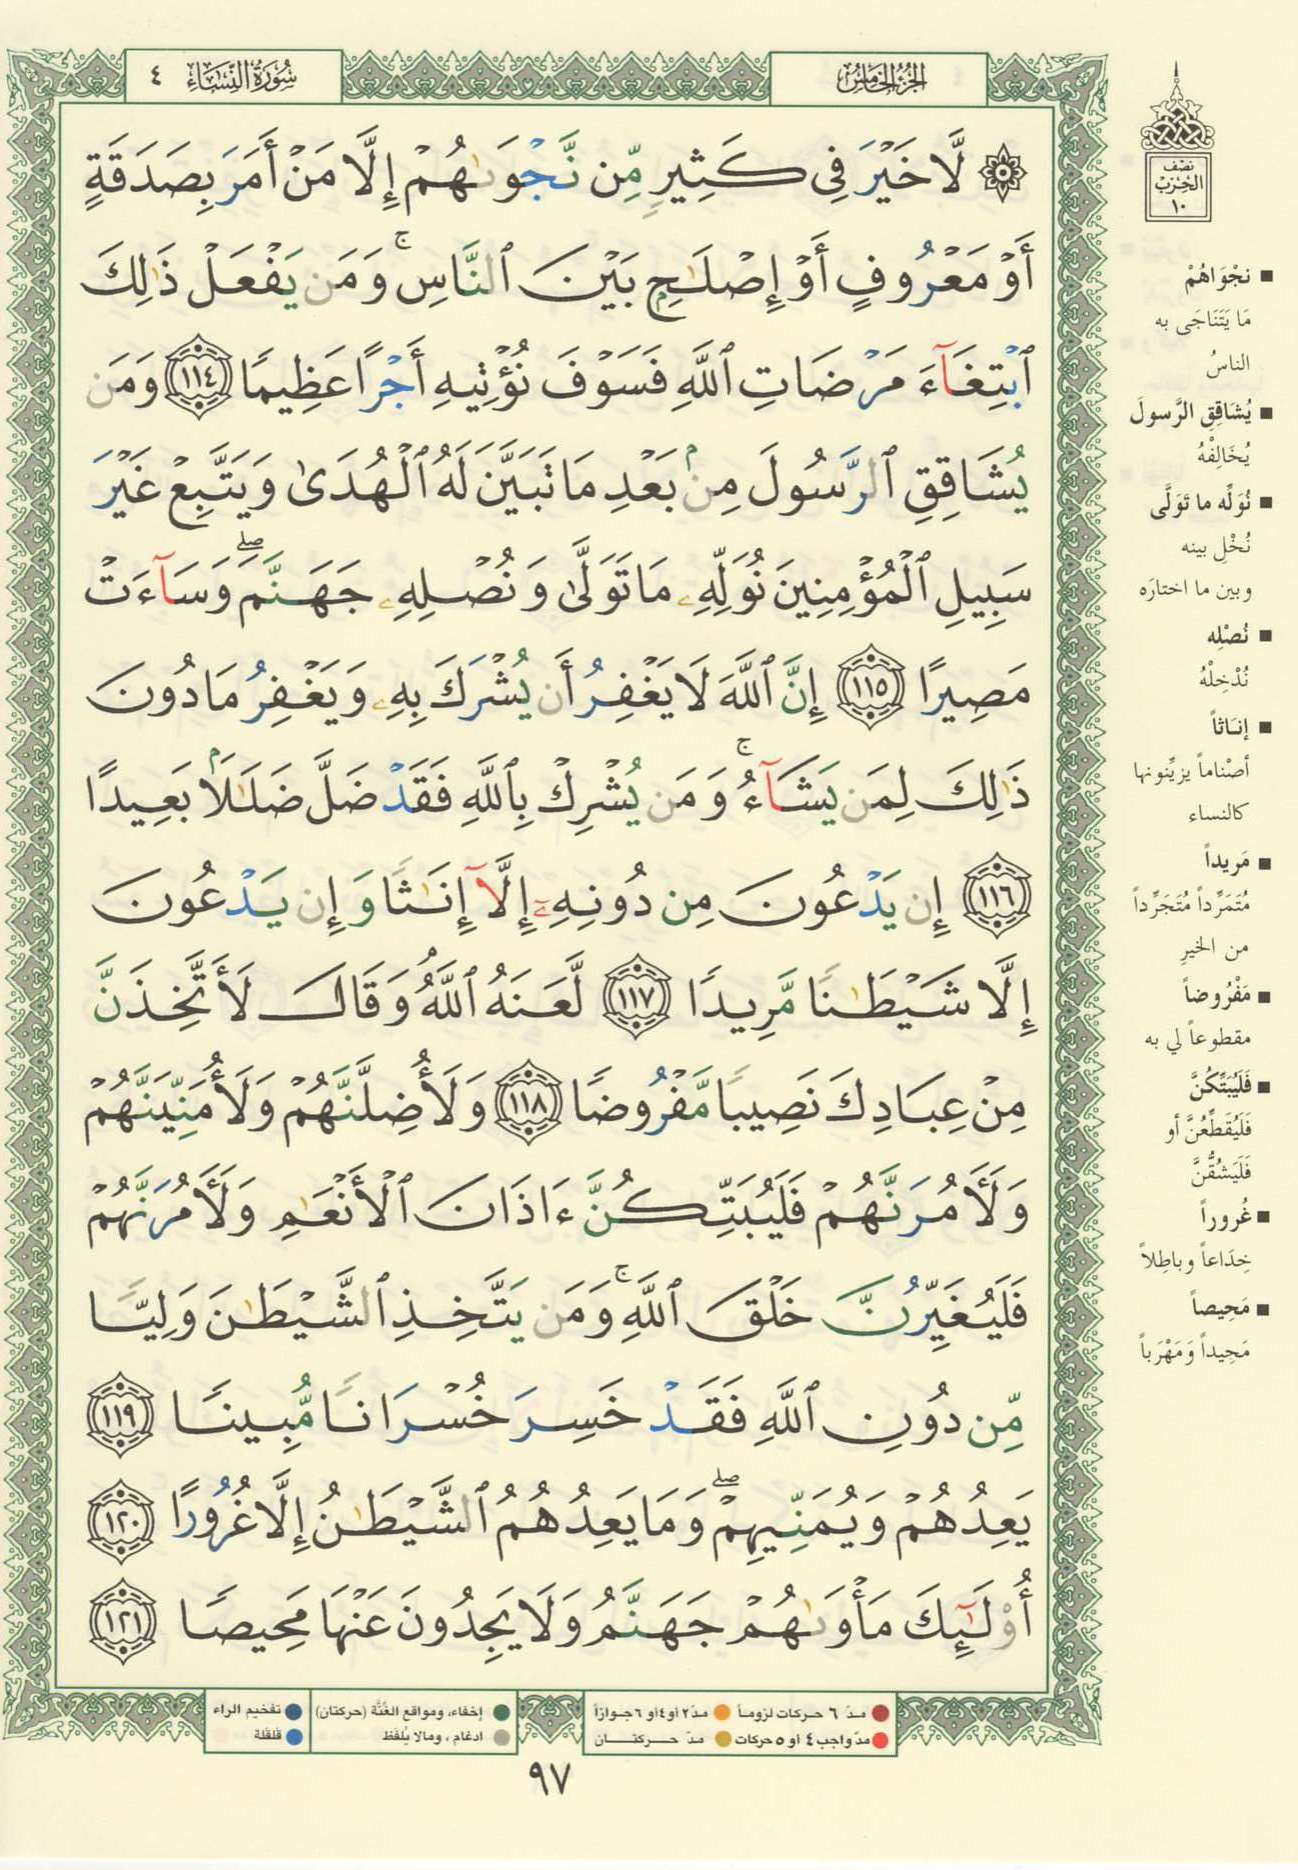 سُورَةُ النِّسَاءِ ٤
الجُزْءُ الخَامِسُ
۞ لَّا خَيْرَ فِى كَثِيرٍ مِّن نَّجْوَىٰهُمْ إِلَّا مَنْ أَمَرَ بِصَدَقَةٍ
أَوْ مَعْرُوفٍ أَوْ إِصْلَٰحٍۭ بَيْنَ ٱلنَّاسِ ۚ وَمَن يَفْعَلْ ذَٰلِكَ
ٱبْتِغَآءَ مَرْضَاتِ ٱللَّهِ فَسَوْفَ نُؤْتِيهِ أَجْرًا عَظِيمًا ١١٤ وَمَن
يُشَاقِقِ ٱلرَّسُولَ مِنۢ بَعْدِ مَا تَبَيَّنَ لَهُ ٱلْهُدَىٰ وَيَتَّبِعْ غَيْرَ
سَبِيلِ ٱلْمُؤْمِنِينَ نُوَلِّهِۦ مَا تَوَلَّىٰ وَنُصْلِهِۦ جَهَنَّمَ ۖ وَسَآءَتْ
مَصِيرًا ١١٥ إِنَّ ٱللَّهَ لَا يَغْفِرُ أَن يُشْرَكَ بِهِۦ وَيَغْفِرُ مَا دُونَ
ذَٰلِكَ لِمَن يَشَآءُ ۚ وَمَن يُشْرِكْ بِٱللَّهِ فَقَدْ ضَلَّ ضَلَٰلًۢا بَعِيدًا
١١٦ إِن يَدْعُونَ مِن دُونِهِۦٓ إِلَّآ إِنَٰثًا وَإِن يَدْعُونَ
إِلَّا شَيْطَٰنًا مَّرِيدًا ١١٧ لَّعَنَهُ ٱللَّهُ ۘ وَقَالَ لَأَتَّخِذَنَّ
مِنْ عِبَادِكَ نَصِيبًا مَّفْرُوضًا ١١٨ وَلَأُضِلَّنَّهُمْ وَلَأُمَنِّيَنَّهُمْ
وَلَءَامُرَنَّهُمْ فَلَيُبَتِّكُنَّ ءَاذَانَ ٱلْأَنْعَٰمِ وَلَءَامُرَنَّهُمْ
فَلَيُغَيِّرُنَّ خَلْقَ ٱللَّهِ ۚ وَمَن يَتَّخِذِ ٱلشَّيْطَٰنَ وَلِيًّا
مِّن دُونِ ٱللَّهِ فَقَدْ خَسِرَ خُسْرَانًا مُّبِينًا ١١٩
يَعِدُهُمْ وَيُمَنِّيهِمْ ۖ وَمَا يَعِدُهُمُ ٱلشَّيْطَٰنُ إِلَّا غُرُورًا ١٢٠
أُو۟لَٰٓئِكَ مَأْوَىٰهُمْ جَهَنَّمُ وَلَا يَجِدُونَ عَنْهَا مَحِيصًا ١٢١
نصف
الحزب
١٠
■ نجْوَاهُمْ
مَا يَتَنَاجَى به
الناسُ
■ يُشَاقِقِ الرَّسولَ
يُخَالِفْهُ
■ نُوَلِّه ما تَوَلَّى
نُخْلِ بينه
وبين ما اختارَه
■ نُصْلِه
نُدْخِلْهُ
■ إنَاثاً
أصْناماً يزيِّنونها
كالنساء
■ مَريداً
مُتَمَرِّداً مُتَجَرِّداً
من الخيرِ
■ مَفْرُوضاً
مقطوعاً لي به
■ فَلَيُبَتِّكُنَّ
فَلَيُقَطِّعُنَّ أو
فَلَيَشُقُّنَّ
■ غُروراً
خِدَاعاً وباطِلاً
■ مَحِيصاً
مَحِيداً وَمَهْرَباً
مدّ ٦ حركات لزوماً
مدّ ٢ أو ٤ أو ٦ جوازاً
مدّ واجب ٤ أو ٥ حركات
مدّ حـركتـان
إخفاء، ومواقع الغُنَّة (حركتان)
ادغام ، ومالا يُلفَظ
تفخيم الراء
قلقلة
٩٧